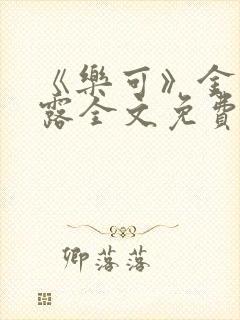 《樂可》金
露全文免費
卿落落